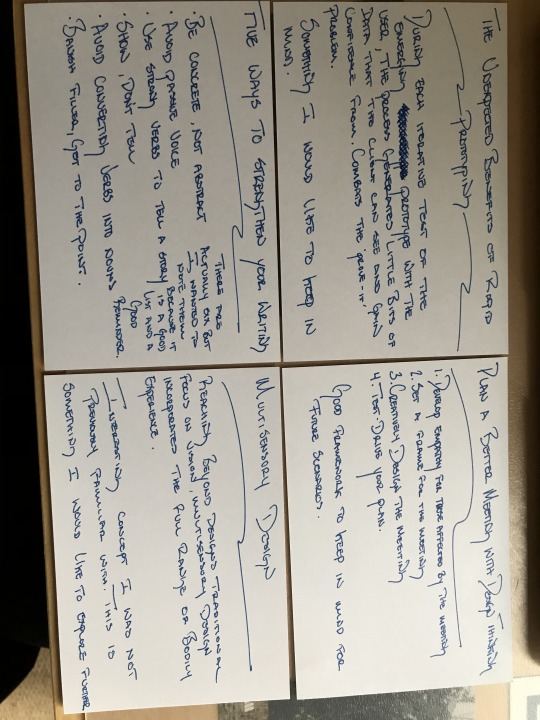 THE UNEXPECTED BENEFITS OF RAPID
PROTOTYPING
DURING EACH ITERATIVE TEST OF THE
EMERGING PROTOTYPE WITH THE
USER, THE PROCESS GENERATES LITTLE BITS OF
DATA THAT THE CLIENT CAN SEE AND GAIN
CONFIDENCE FROM. COMBATS THE PROVE-IT
PROBLEM.
SOMETHING I WOULD LIKE TO KEEP IN
MIND.
PLAN A BETTER MEETING WITH DESIGN THINKING
1. DEVELOP EMPATHY FOR THOSE AFFECTED BY THE MEETING
2. SET A FRAME FOR THE MEETING
3. CREATIVELY DESIGN THE MEETING
4. TEST DRIVE YOUR PLAN.
GOOD FRAMEWORK TO KEEP IN MIND FOR
FUTURE SCENARIOS.
FIVE WAYS TO STRENGTHEN YOUR WRITING
• BE CONCRETE, NOT ABSTRACT
• AVOID PASSIVE VOICE
• USE STRONG VERBS TO TELL A STORY
• SHOW, DON'T TELL
• AVOID CONVERTING VERBS INTO NOUNS
• BANISH FILLER, GET TO THE POINT.
THERE ARE
ACTUALLY SIX BUT
I WANTED TO
NOTE THEM
BECAUSE IT
IS A GOOD
LIST AND A
GOOD
REMINDER.
MULTISENSORY DESIGN
REACHING BEYOND DESIGN'S TRADITIONAL
FOCUS ON VISION, MULTISENSORY DESIGN
INCORPORATES THE FULL RANGE OF BODILY
EXPERIENCE.
INTERESTING CONCEPT I WAS NOT
PREVIOUSLY FAMILIAR WITH. THIS IS
SOMETHING I WOULD LIKE TO EXPLORE FURTHER